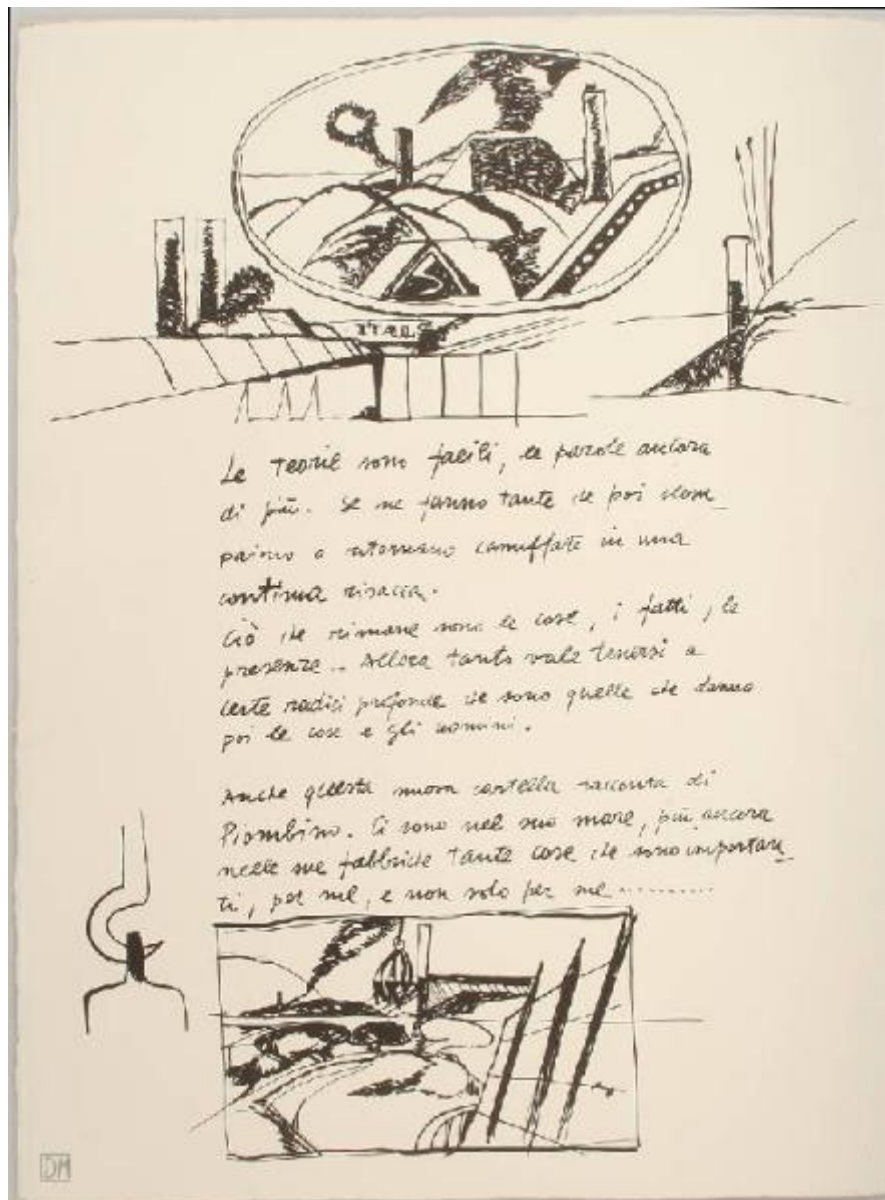 ITALS
Le teorie sono facili, le parole ancora
di più. Se ne fanno tante che poi scom_
paiono o ritornano camuffate in una
continua risacca.
Ciò che rimane sono le cose, i fatti, le
presenze.. Allora tanto vale tenersi a
certe radici profonde che sono quelle che danno
poi le cose e gli uomini.
Anche questa nuova cartella racconta di
Piombino. Ci sono nel suo mare, più ancora
nelle sue fabbriche tante cose che sono importan_
ti, per me, e non solo per me..........
DM